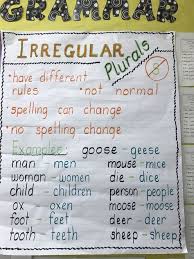 GRAMMAR
IRREGULAR
Plurals
s
•have different rules
•not normal
•spelling can change
•no spelling change
Examples:
goose – geese
man – men
mouse – mice
woman – women
die – dice
child – children
person – people
ox – oxen
moose – moose
foot – feet
deer – deer
tooth – teeth
sheep – sheep